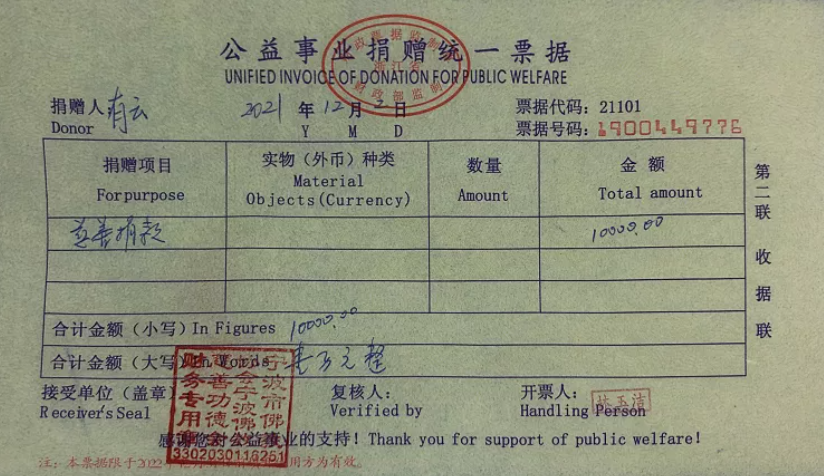 公益事业捐赠统一票据
UNIFIED INVOICE OF DONATION FOR PUBLIC WELFARE
捐赠人 有云 2021 年 12 月 2 日 票据代码：21101
Donor Y M D 票据号码：1900449776
捐赠项目 实物（外币）种类 数量 金额
For purpose Material Objects (Currency) Amount Total amount
慈善捐款 10000.00
合计金额（小写）In Figures 10000.00
合计金额（大写）In Words 壹万元整
接受单位（盖章） 复核人： 开票人： 林玉洁
Receiver's Seal Verified by Handling Person
感谢您对公益事业的支持！Thank you for support of public welfare!
注：本票据限于2022年 用方为有效。
第二联 收据联
浙江省
财政部监制
宁波市佛
善功德
财务专用章
3302030116251